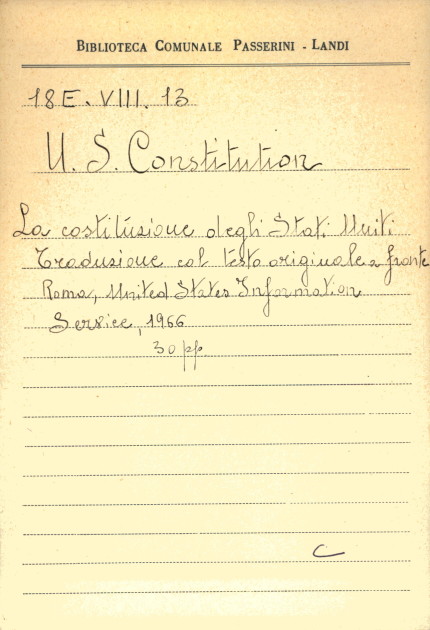 BIBLIOTECA COMUNALE PASSERINI - LANDI
18E. VIII. 13
U. S. Constitution
La costituzione degli Stati Uniti
Traduzione col testo originale a fronte
Roma, United States Information
Service, 1966
30 pp
C